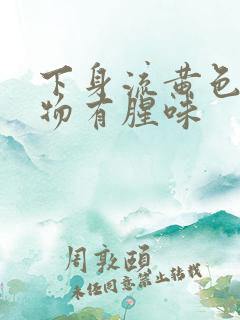 下身流黄色
物有腥味
周敦颐
未经同意禁止转载